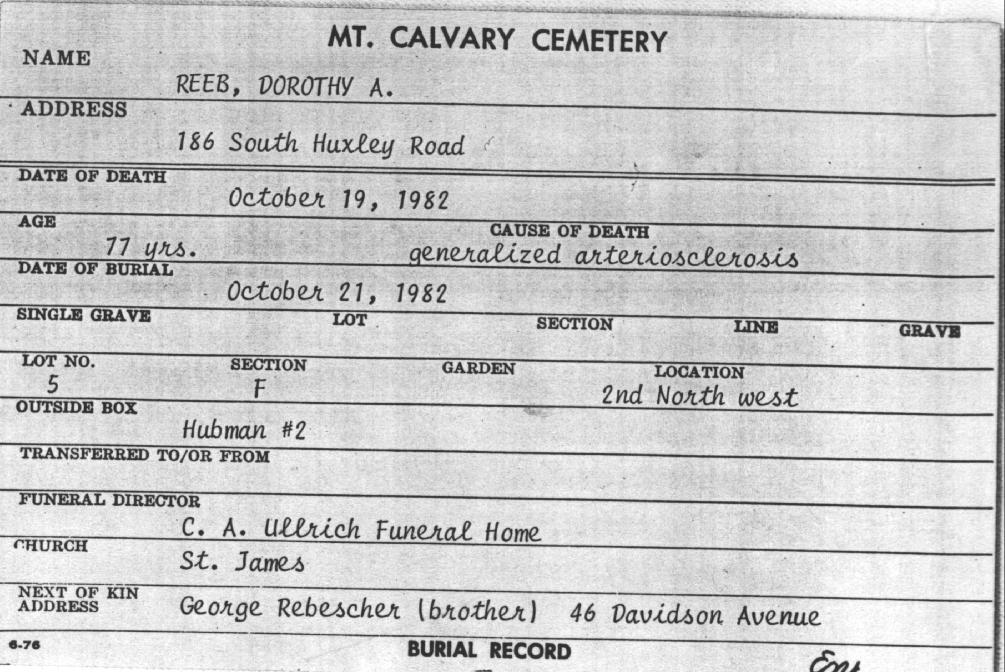 MT. CALVARY CEMETERY
NAME
REEB, DOROTHY A.
ADDRESS
186 South Huxley Road
DATE OF DEATH
October 19, 1982
AGE CAUSE OF DEATH
77 yrs. generalized arteriosclerosis
DATE OF BURIAL
October 21, 1982
SINGLE GRAVE LOT SECTION LINE GRAVE
LOT NO. SECTION GARDEN LOCATION
5 F 2nd North west
OUTSIDE BOX
Hubman #2
TRANSFERRED TO/OR FROM
FUNERAL DIRECTOR
C. A. Ullrich Funeral Home
CHURCH
St. James
NEXT OF KIN
ADDRESS George Rebescher (brother) 46 Davidson Avenue
6-76 BURIAL RECORD